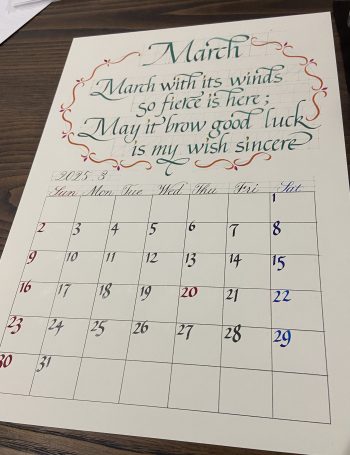 March
March with its winds
so fierce is here;
May it brow good luck
is my wish sincere
2025. 3
Sun Mon Tue Wed Thu Fri Sat
1
2 3 4 5 6 7 8
9 10 11 12 13 14 15
16 17 18 19 20 21 22
23 24 25 26 27 28 29
30 31